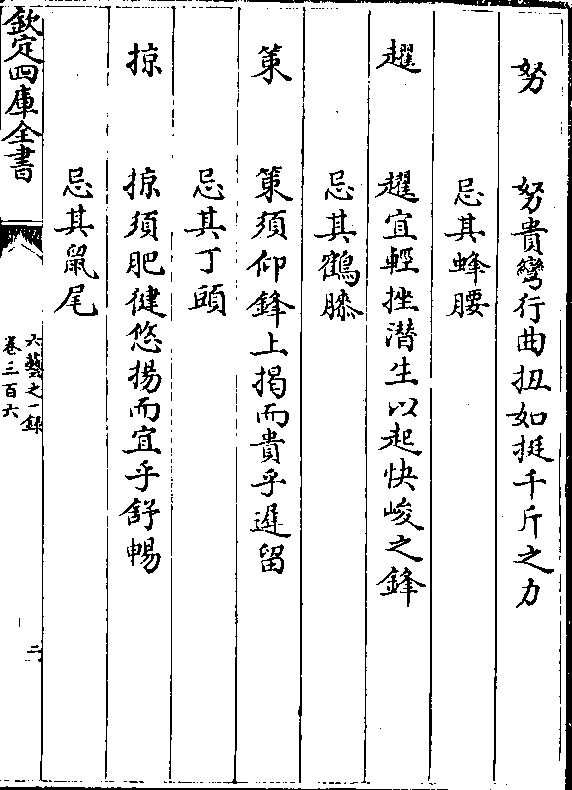 努　努貴彎行曲扭如挺千斤之力
忌其蜂腰
趯　趯宜輕挫潛生以起快峻之鋒
忌其鶴膝
策　策須仰鋒上揭而貴乎遲留
忌其丁頭
掠　掠須肥健悠揚而宜乎舒暢
忌其鼠尾
欽定四庫全書
六藝之一録
卷三百六
二